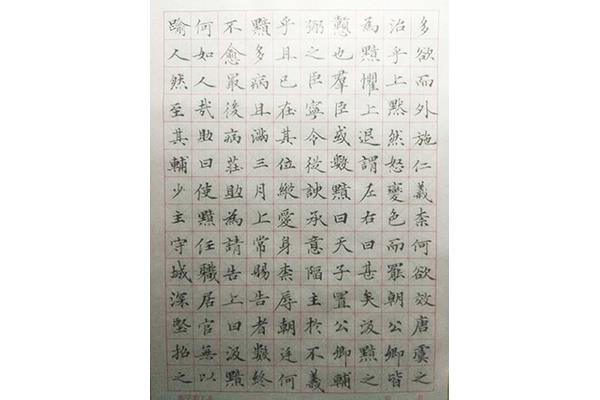 多欲而外施仁義柰何欲效唐虞之
治乎上黙然怒變色而罷朝公卿皆
為黯懼上退謂左右曰甚矣汲黯之
戇也羣臣或數黯曰天子置公卿輔
弼之臣寧令從諛承意陷主於不義
乎且已在其位縱愛身柰辱朝廷何
黯多病且滿三月上常賜告者數終
不愈最後病莊助為請告上曰汲黯
何如人哉助曰使黯任職居官無以
踰人然至其輔少主守城深堅招之